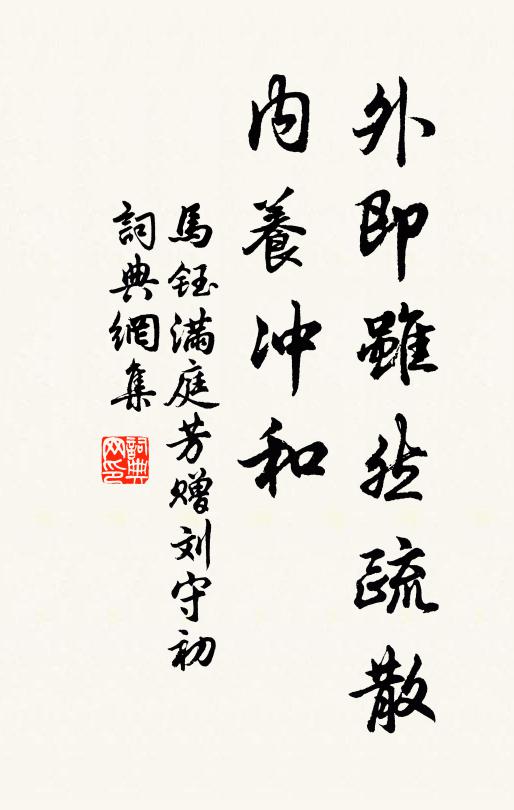 外即雖然疏散
内養冲和
馬鈺滿庭芳贈刘守初
詞典網集
詞典网印